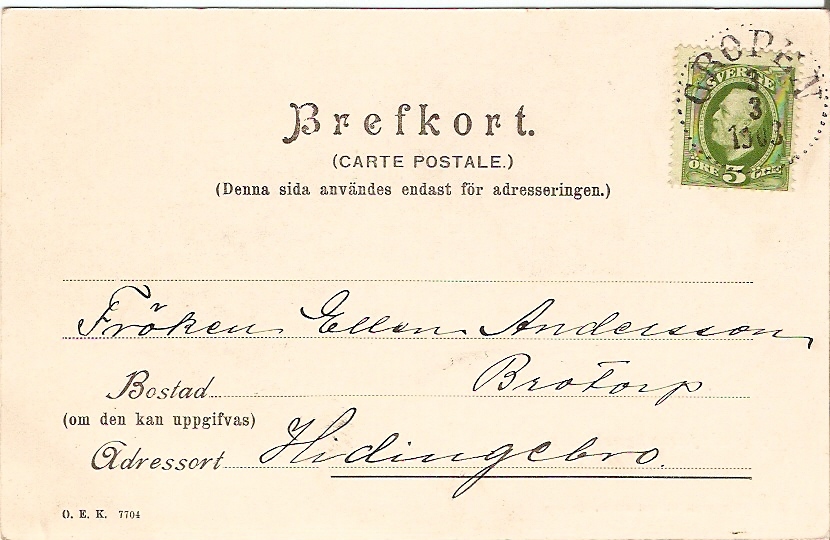 GROPEN
3
3
1903
SVERIGE
ÖRE 5 ÖRE
Brefkort.
(CARTE POSTALE.)
(Denna sida användes endast för adresseringen.)
Fröken Ellen Andersson
Brotorp
Bostad
(om den kan uppgifvas)
Adressort Hidingebro.
O. E. K. 7704